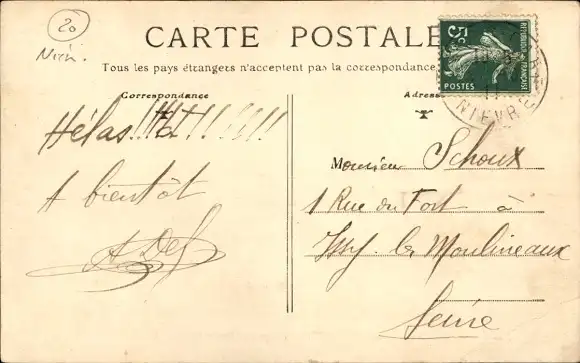 20
Nièv.
CARTE POSTALE
Tous les pays étrangers n'acceptent pas la correspondance
5c
REPUBLIQUE FRANÇAISE
POSTES
NIEVRE
Correspondance
Hélas!!!!!!!!!!!
A bientôt
A Del
Adress
Monsieur Schoux
1 Rue du Fort à
Issy-les-Moulineaux
Seine